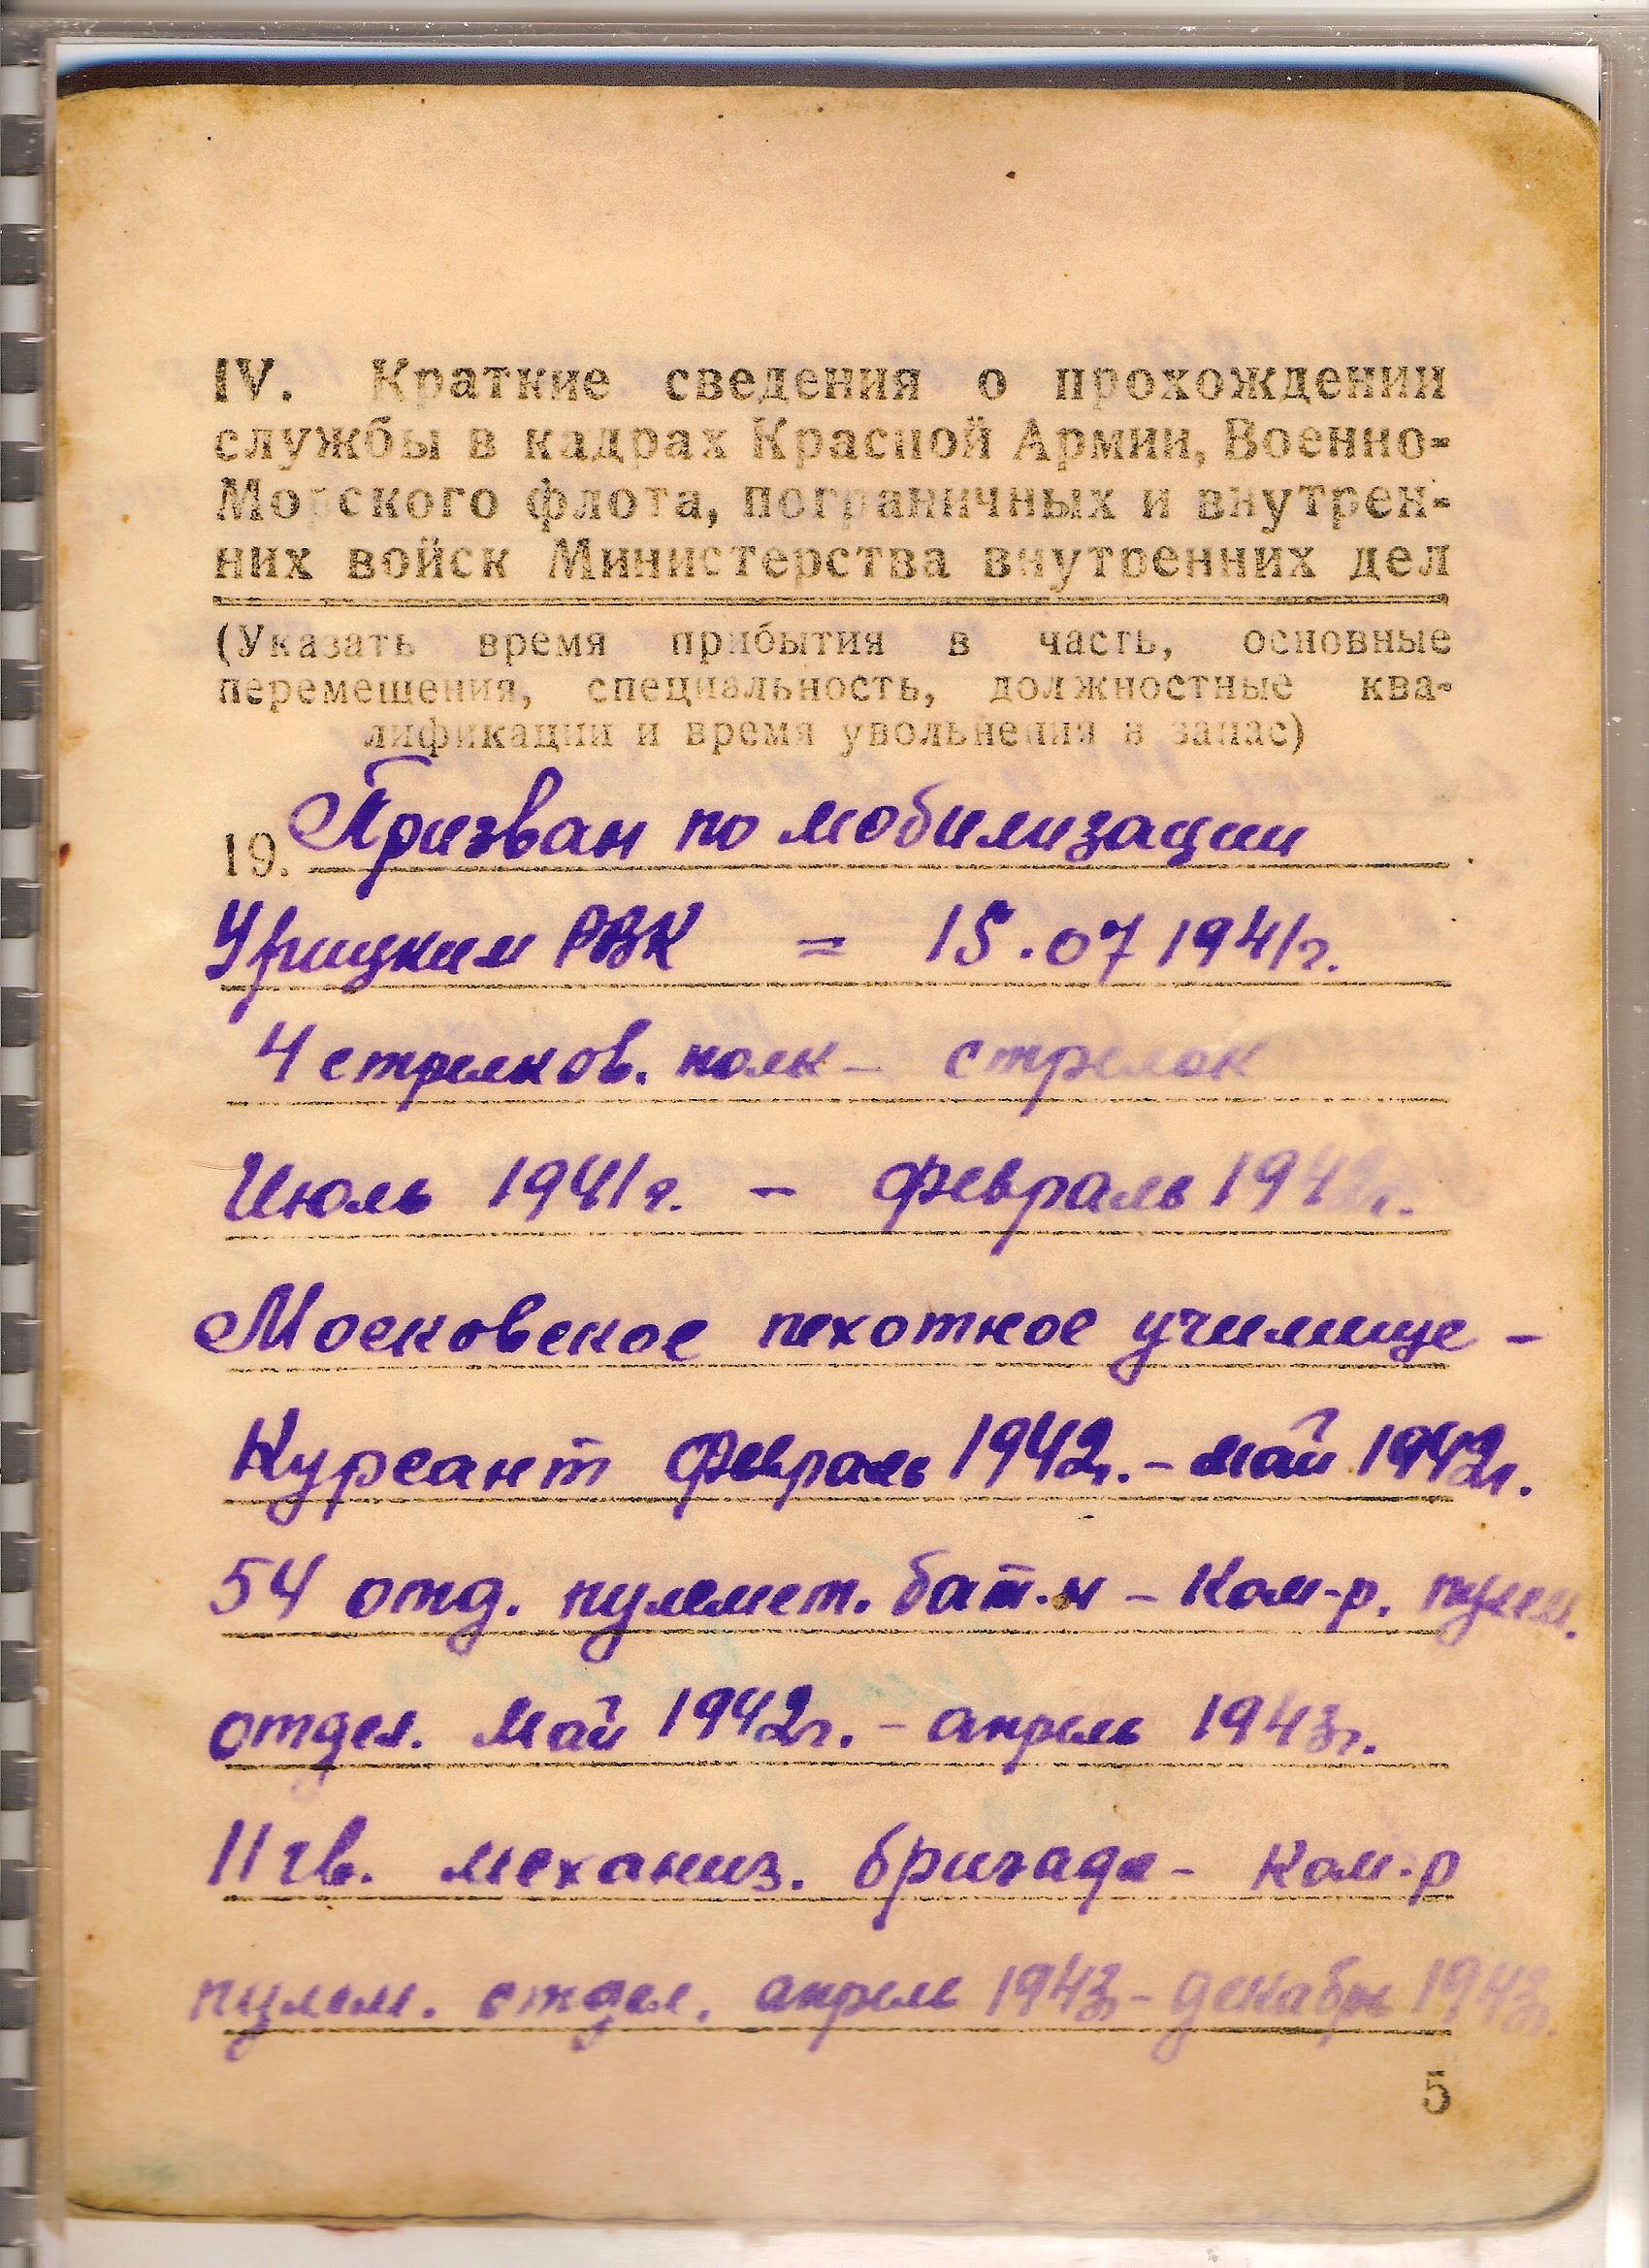 IV. Краткие сведения о прохождении
службы в кадрах Красной Армии, Военно-
Морского флота, пограничных и внутрен-
них войск Министерства внутренних дел
(Указать время прибытия в часть, основные
перемещения, специальность, должностные ква-
лификации и время увольнения в запас)
19. Призван по мобилизации
Урицким РВК = 15.07 1941г.
4 стрелков. полк - стрелок
Июль 1941г. - февраль
Московское пехотное училище -
Курсант февраль 1942г. - май 1942г.
54 отд. пулемет. бат.н - Ком-р. пулем.
отдел. Май 1942г. - апрель 1943г.
11 гв. механиз. бригада - Ком-р
пулем. отдел. апрель 1943г - декабрь 1943г.
5